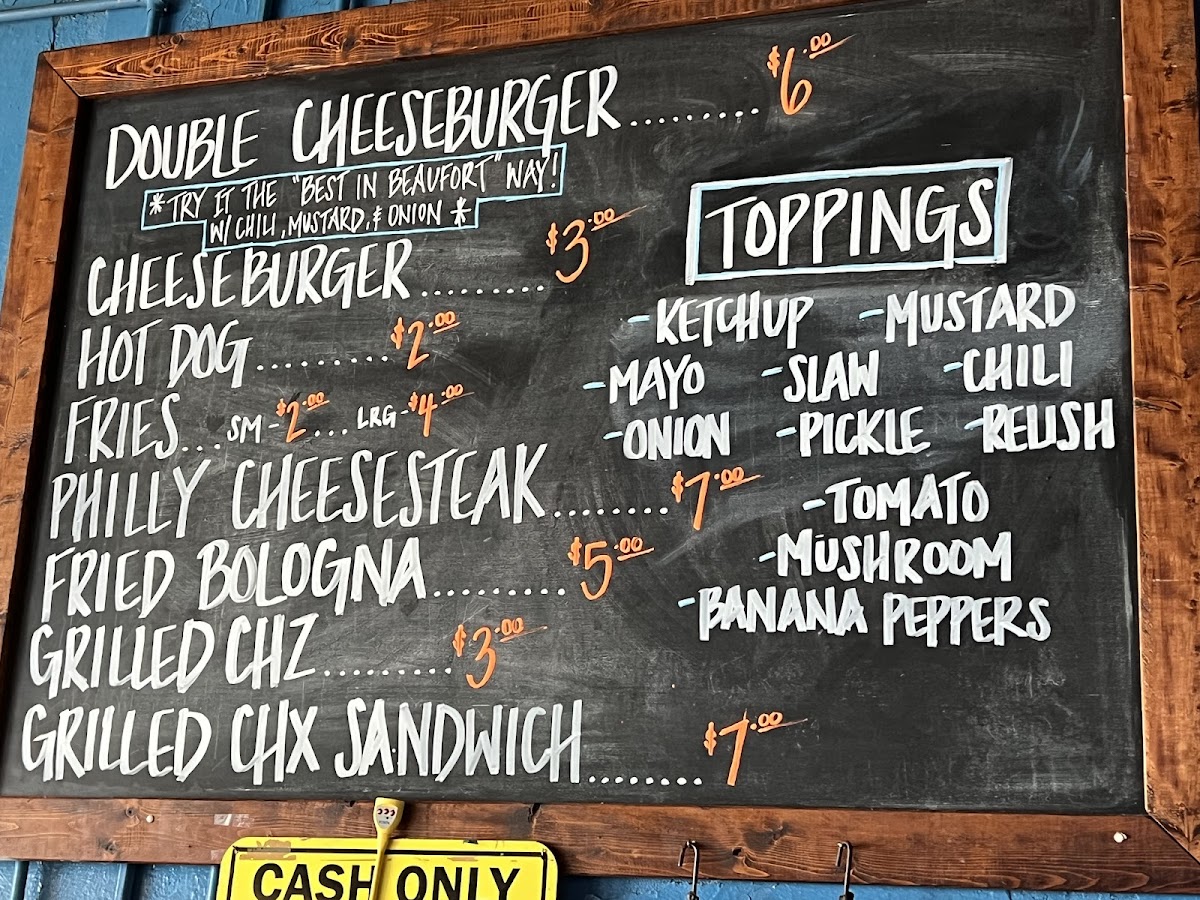 DOUBLE CHEESEBURGER.........$6.00
*TRY IT THE "BEST IN BEAUFORT" WAY!
W/ CHILI, MUSTARD, & ONION *
CHEESEBURGER.........$3.00
HOT DOG.........$2.00
FRIES...SM-$2.00...LRG-$4.00
PHILLY CHEESESTEAK........$7.00
FRIED BOLOGNA.........$5.00
GRILLED CHZ.........$3.00
GRILLED CHX SANDWICH........$7.00
TOPPINGS
-KETCHUP -MUSTARD
-MAYO -SLAW -CHILI
-ONION -PICKLE -RELISH
-TOMATO
-MUSHROOM
-BANANA PEPPERS
CASH ONLY